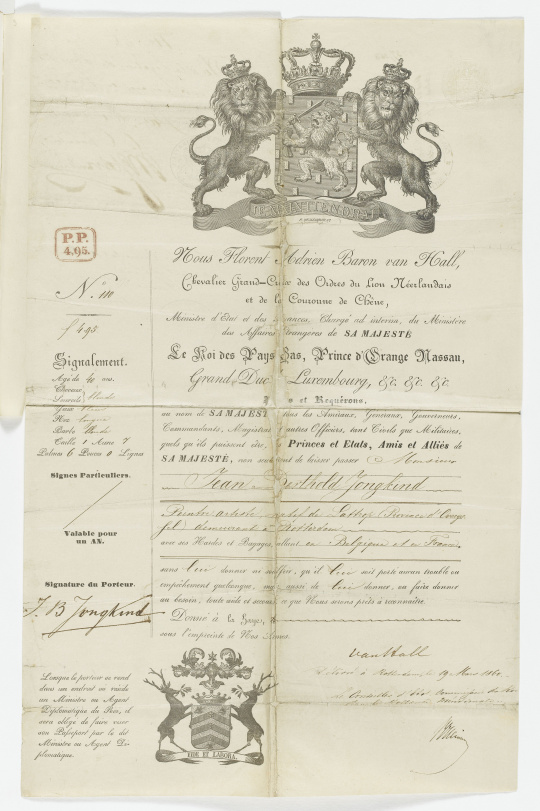 JE MAINTIENDRAI
P.P.
4.95.
Nous Florent Adrien Baron van Hall,
Chevalier Grand-Croix des Ordres du Lion Néerlandais
et de la Couronne de Chêne,
Ministre d'Etat et des Finances, Chargé ad interim, du Ministère
des Affaires Etrangères de SA MAJESTÉ
Le Roi des Pays Bas, Prince d'Orange Nassau,
Grand Duc de Luxembourg, &c. &c. &c.
et Requérons,
au nom de SA MAJESTÉ tous les Amiraux, Généraux, Gouverneurs,
Commandants, Magistrats et autres Officiers, tant Civils que Militaires,
quels qu'ils puissent être, les Princes et Etats, Amis et Alliés de
SA MAJESTÉ, non seulement de laisser passer Monsieur
Jean Berthold Jongkind
Peintre artiste natif de Lattrop
demeurant à Rotterdam
avec ses Hardes et Bagages, allant en Belgique et en France
sans lui donner ni souffrir, qu'il lui soit porté aucun trouble ou
empêchement quelconque, mais aussi de lui donner, ou faire donner
au besoin, toute aide et secours, ce que Nous serons prêts à reconnaître.
Donné à La Haye,
sous l'empreinte de Nos Armes.
van Hall
N.º 110
f 4.95
Signalement.
Agé de 40 ans.
Cheveux
Sourcils Blonds
Yeux
Nez
Barbe Blonde
Taille 1 Aune 7
Palmes 6 Pouces 0 Lignes
Signes Particuliers.
Valable pour
un AN.
Signature du Porteur.
J. B Jongkind
Lorsque le porteur se rend
dans un endroit où réside
un Ministre ou Agent
Diplomatique du Pays, il
sera obligé de faire viser
son Passeport par le dit
Ministre ou Agent Di-
plomatique.
VIDE ET LABORA.